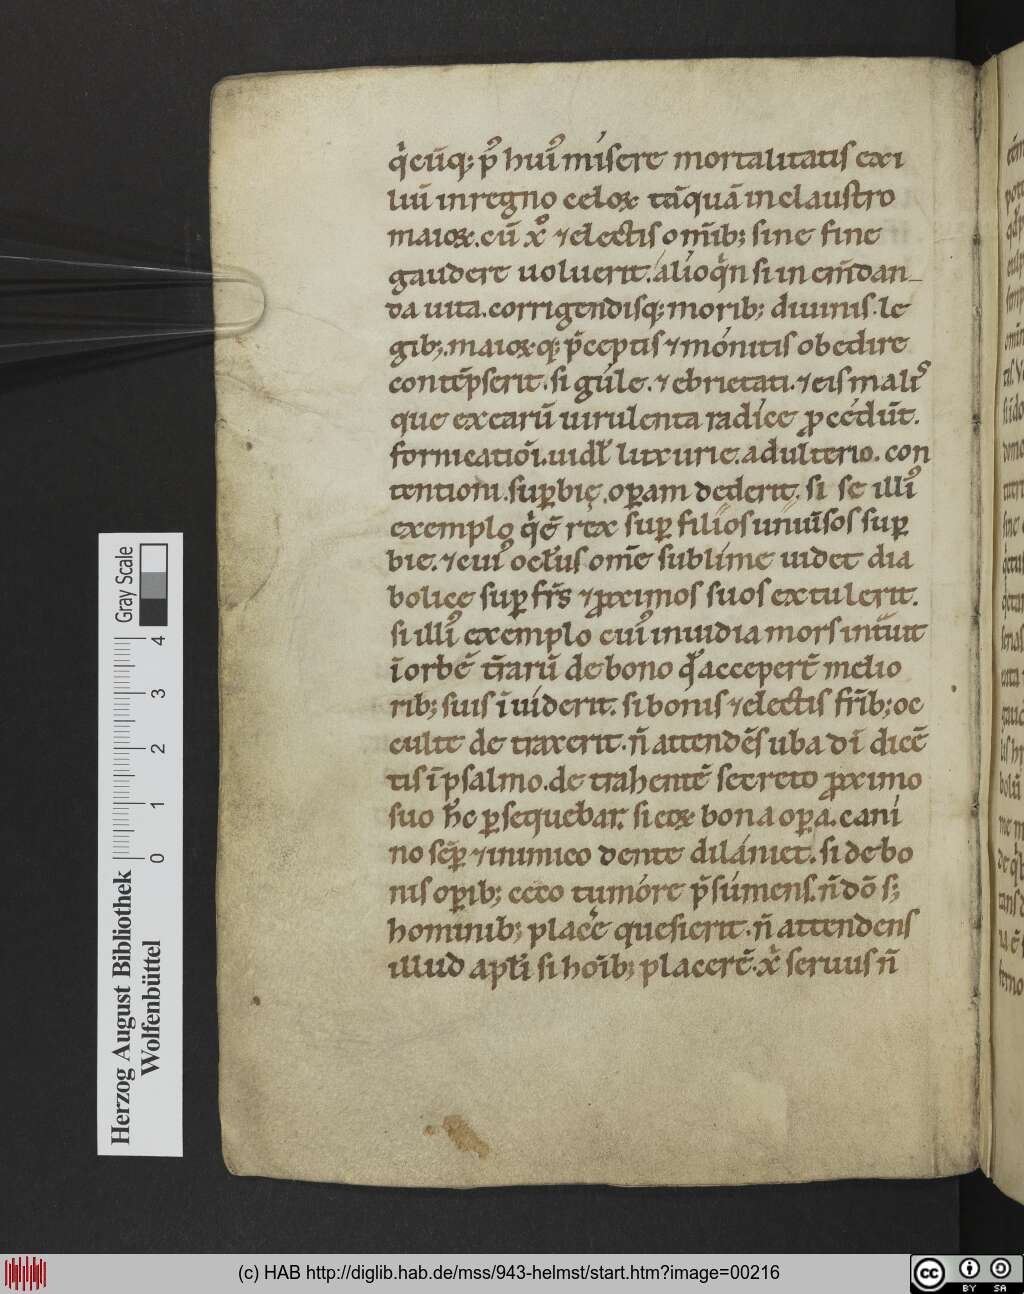 q̇cūq; p᷒ hui᷒ misere mortalitatis exi
liū in regno celoꝝ tāquā in claustro
maioꝝ. cū xº ⁊ electis om̄ib; sine fine
gaudere uoluerit. alioq̇n si in em̄dan
da uita. corrigendisq; morib; diuinis le
gib;. maioꝝq; p̄ceptis ⁊ mónitis obedire
contēpserit. si gúle. ⁊ ebrietati. ⁊ eis mali᷒
que ex earū uirulenta radíce ꝓcédūt.
fornicatiōi. uidl̄ luxurie. adulterio. con
tentioni. suꝑbię. oꝑam dederit. si se illi᷒
exemplo q̇ ē rex suꝑ filios uniūsos suꝑ
bie. ⁊ cui᷒ ocl̄us om̄e sublíme uidet dia
bolice suꝑ fr̄s ⁊ ꝓximos suos extulerit.
si illi᷒ exemplo cui᷒ inuidia mors int̄uit
ī orbē t̄rarū de bono qd̄ accepert̄ melio
rib; suis īuíderit. si bonis ⁊ electis fr̄ib; oc
culte detraxerit. n̄ attendēs uba dī dicē
tis ī psalmo. detrahentē secreto ꝓximo
suo hc̄ ꝑsequebar. si eoꝝ bona oꝑa. cani
no sēꝑ ⁊ inimico dente dilániet. si de bo
nis oꝑib; ceco tumóre p̄súmens. n̄ dō s;
hominib; placē quesierit. n̄ attendens
illud apl̄i si hoīb; placerē. xi̇ seruus n̄
Herzog August Bibliothek
Wolfenbüttel
Gray Scale
0 1 2 3 4
(c) HAB http://diglib.hab.de/mss/943-helmst/start.htm?image=00216
cc BY SA